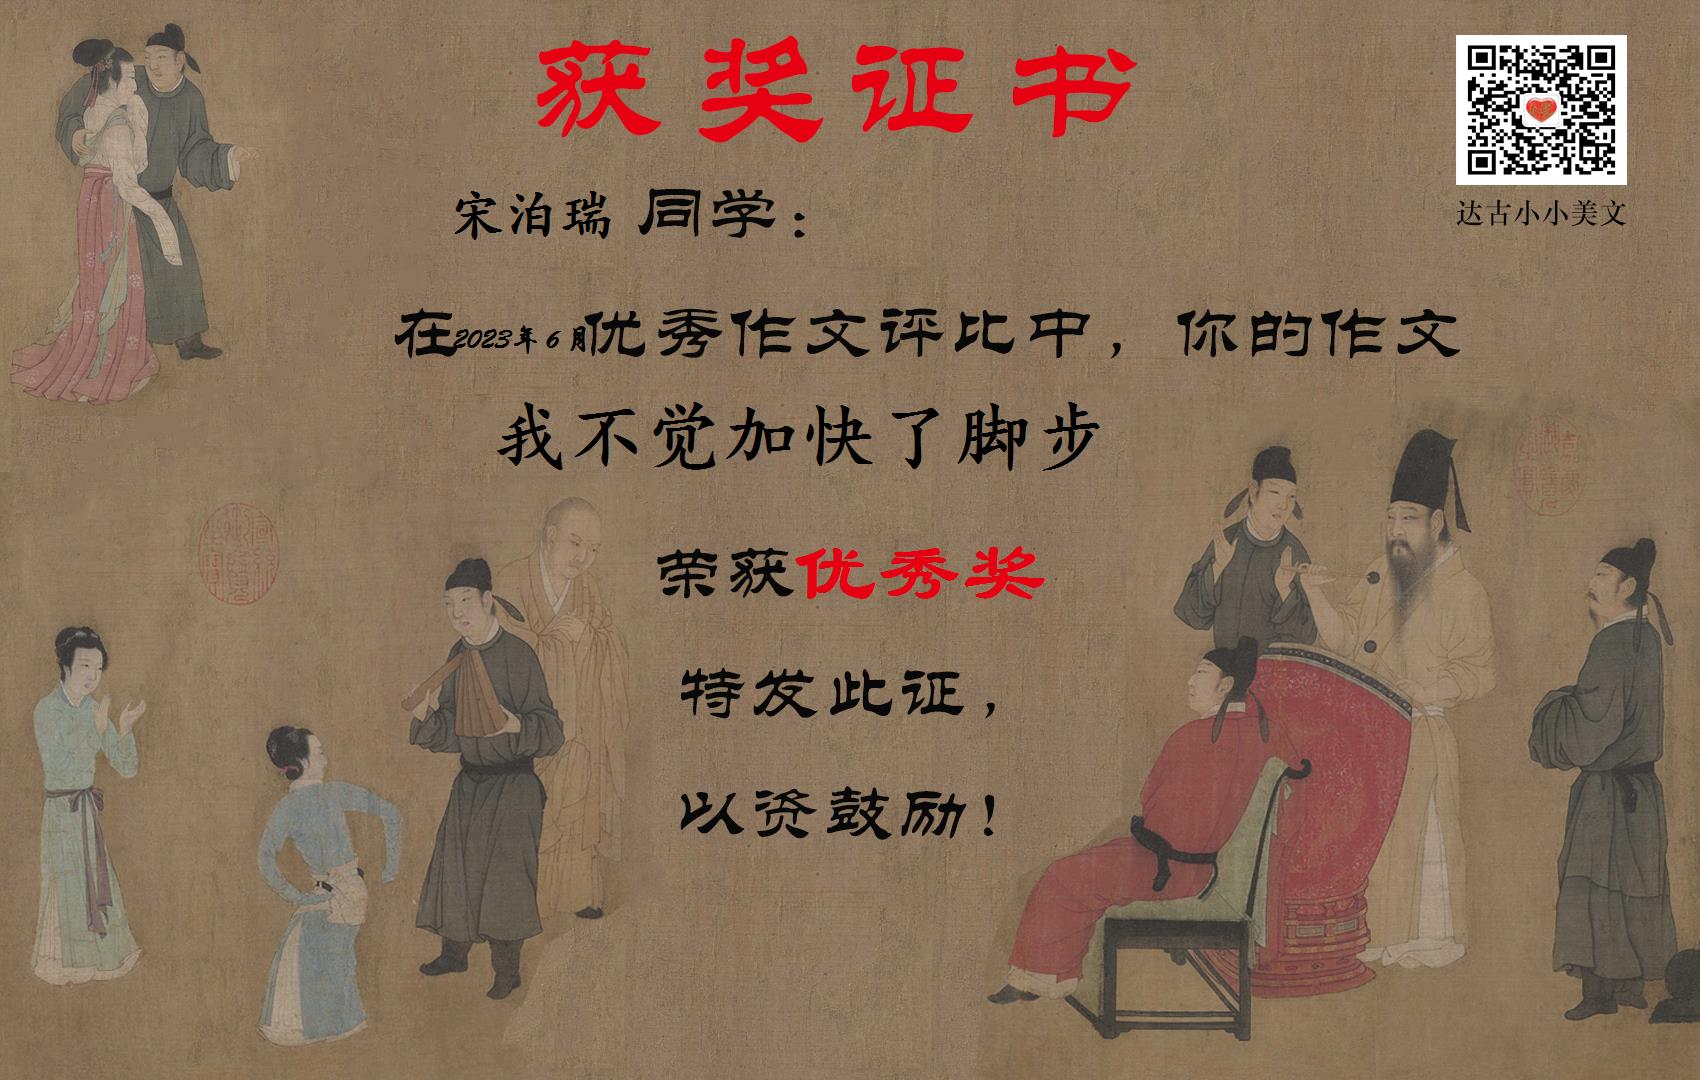 获奖证书
达古小小美文
宋泊瑞 同学：
在2023年6月优秀作文评比中，你的作文
我不觉加快了脚步
荣获优秀奖
特发此证，
以资鼓励！